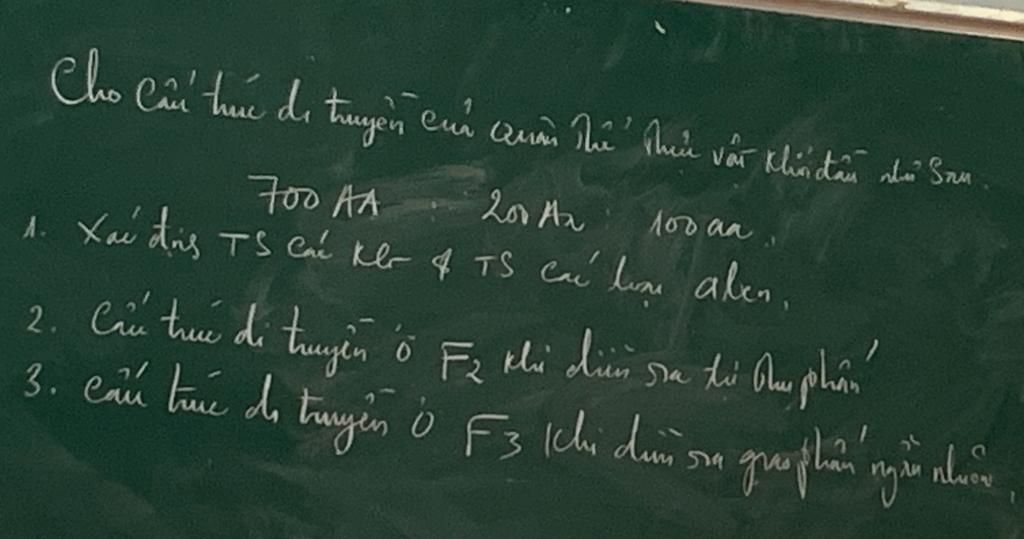 Cho cấu trúc di truyền của quần thể thực vật khởi đầu như sau.
700 AA : 200 Aa : 100 aa.
1. Xác định TS các KG & TS các loại alen.
2. Cấu trúc di truyền ở F2 khi diễn ra tự thụ phấn
3. Cấu trúc di truyền ở F3 khi diễn ra giao phấn ngẫu nhiên.